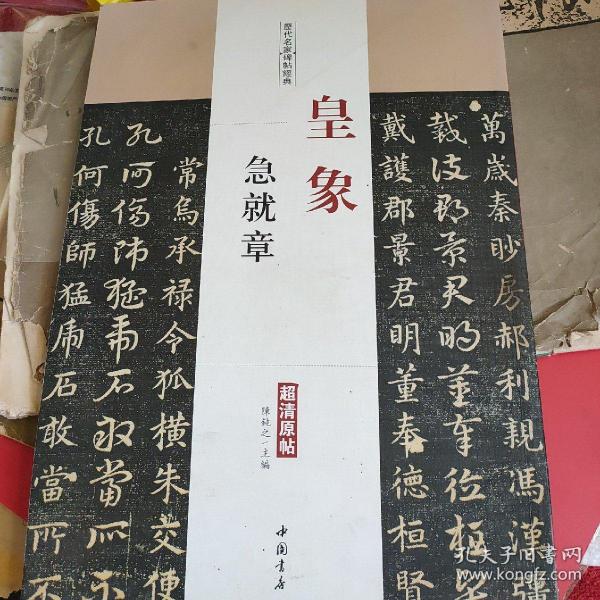 歷代名家碑帖經典
皇象
急就章
超清原帖
陳鈍之一主編
中国書店
萬歲秦眇房郝利親馮漢彊
戴護郡景君明董奉德桓賢
戴護郡景君明董奉德桓
常烏承祿令狐橫朱交便
孔何傷師猛虎石敢當所不
孔何傷師猛虎石敢當所不
孔夫子旧书网
www.kongfz.com